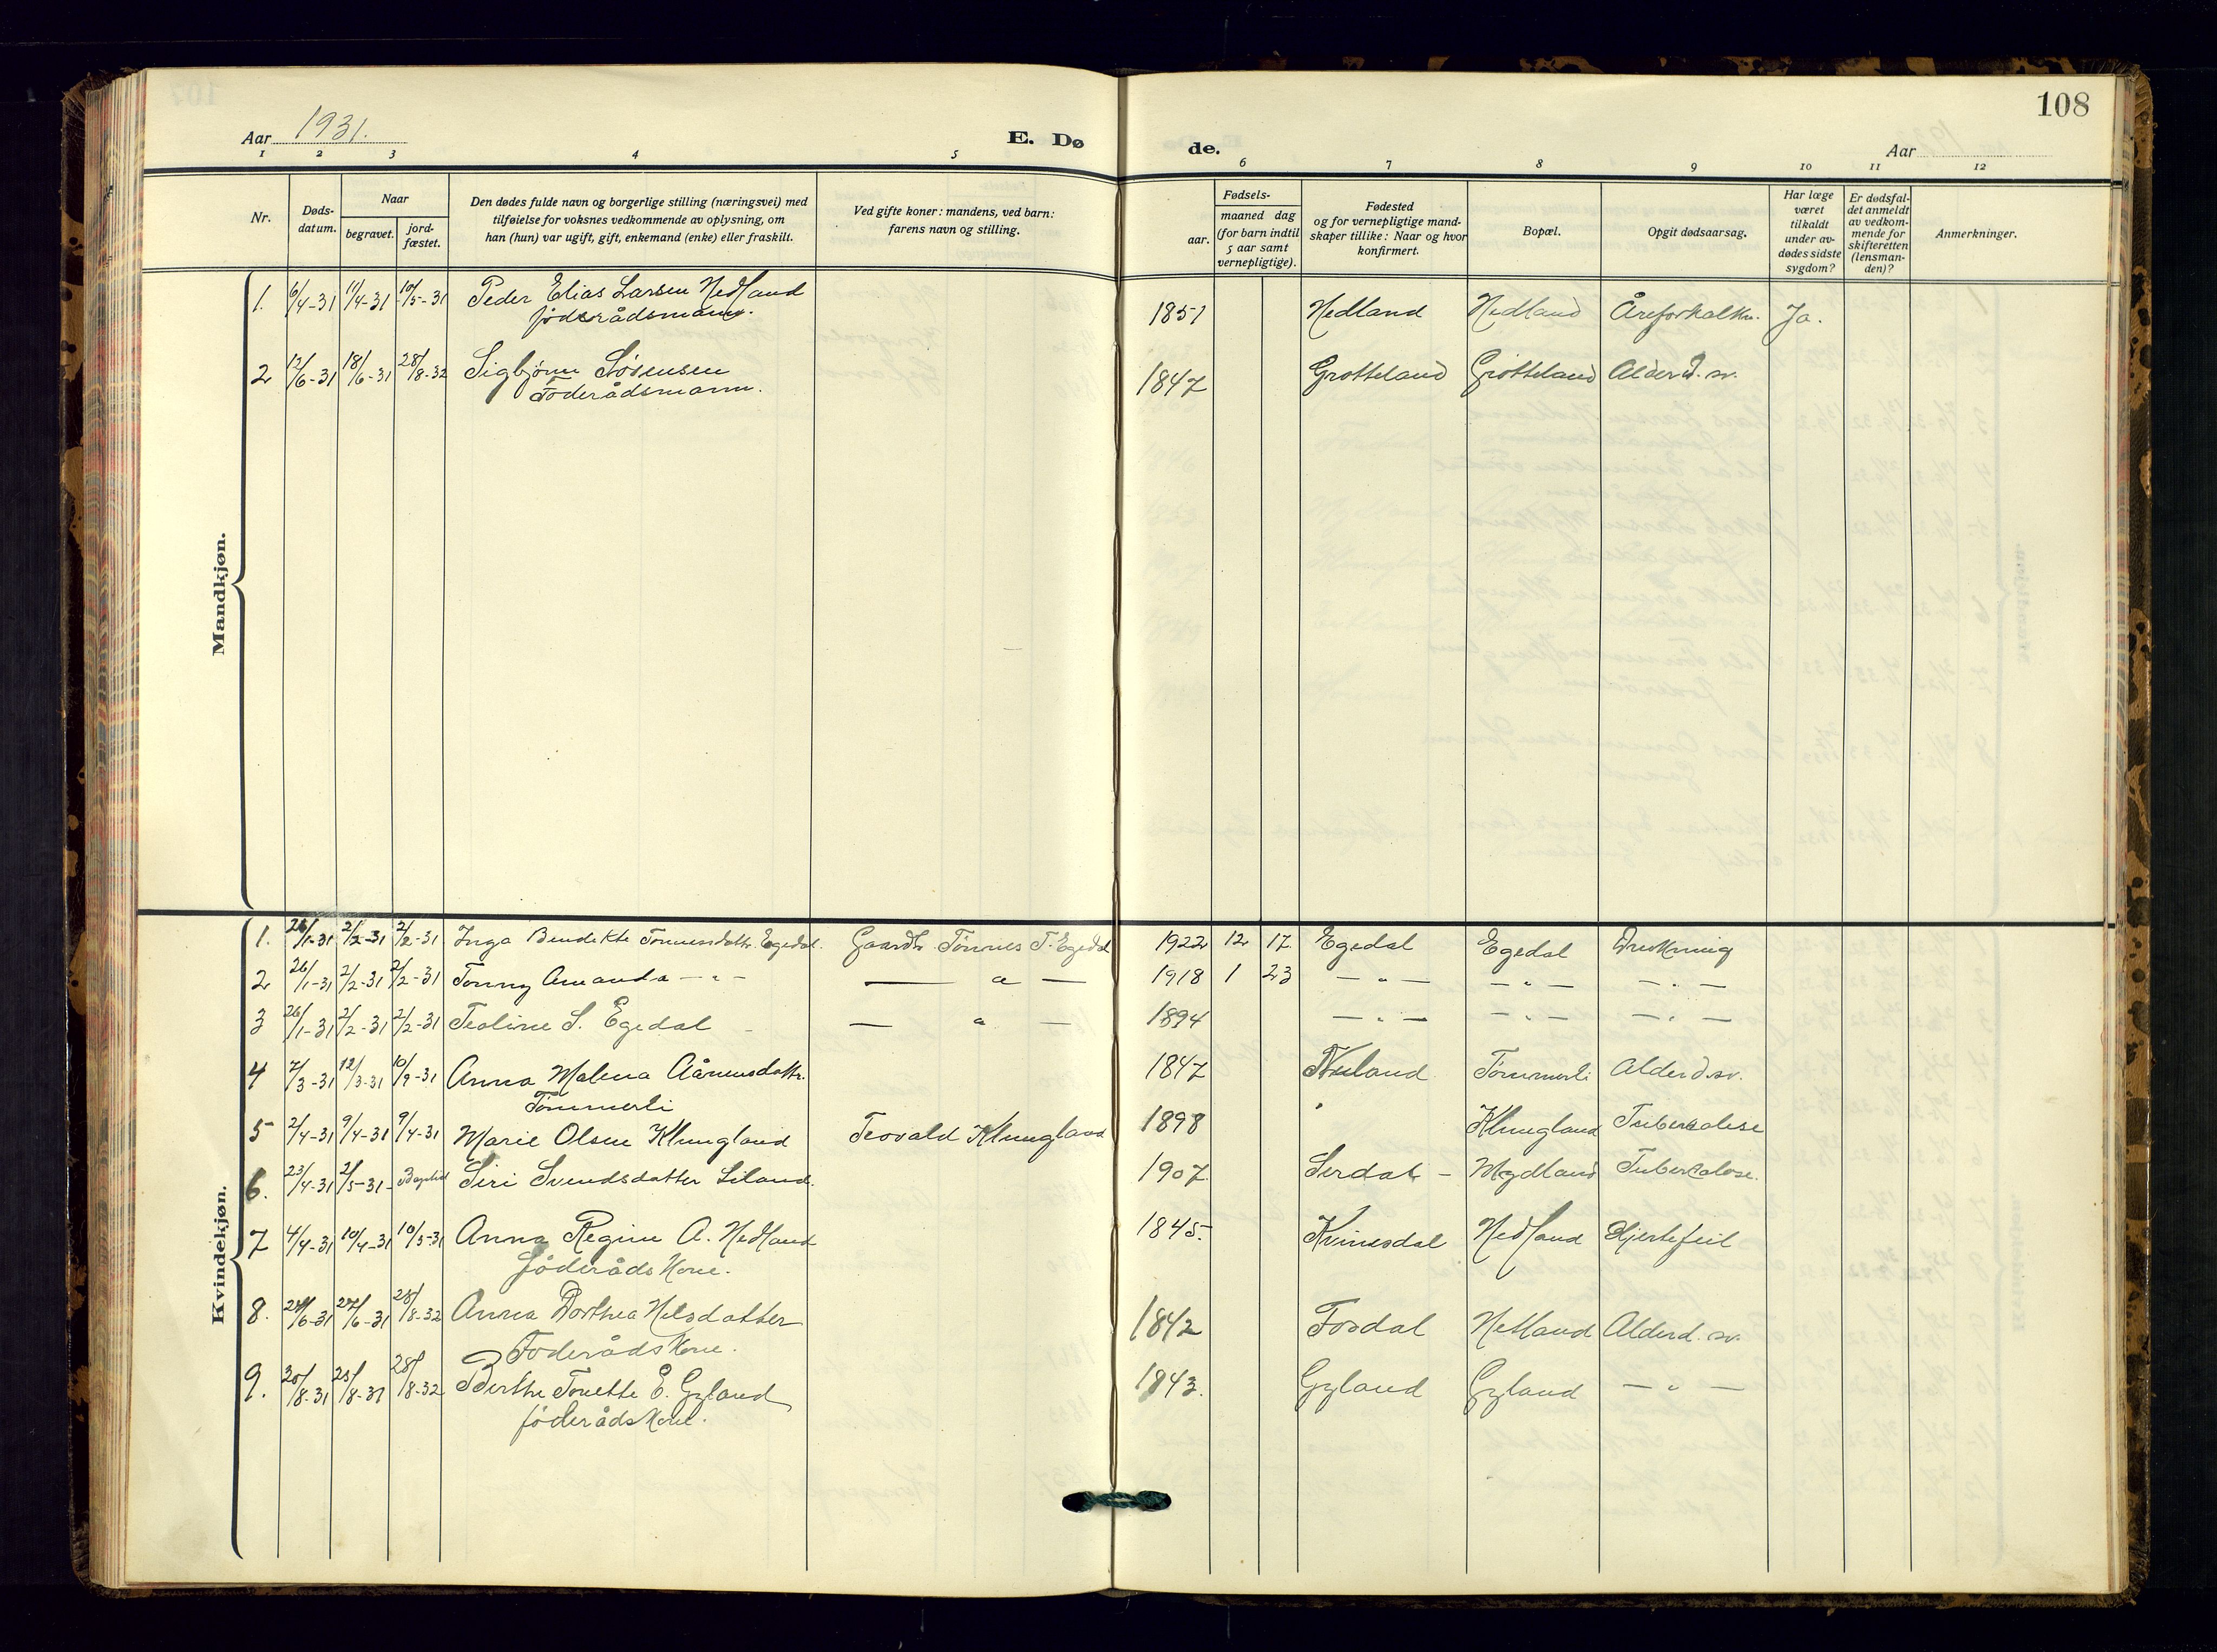 108
Aar 1931.
E. Dø de.
Aar
1 2 3 4 5 6 7 8 9 10 11 12
Nr.
Døds-
datum.
Naar
begravet.
jord-
fæstet.
Den dødes fulde navn og borgerlige stilling (næringsvei) med
tilføielse for voksnes vedkommende av oplysning, om
han (hun) var ugift, gift, enkemand (enke) eller fraskilt.
Ved gifte koner: mandens, ved barn:
farens navn og stilling.
Fødsels-
aar.
maaned dag
(for barn indtil
5 aar samt
vernepligtige).
Fødested
og for vernepligtige mand-
skaper tillike: Naar og hvor
konfirmert.
Bopæl.
Opgit dødsaarsag.
Har læge
været
tilkaldt
under av-
dødes sidste
sygdom?
Er dødsfal-
det anmeldt
av vedkom-
mende for
skifteretten
(lensman-
den)?
Anmerkninger.
Mandkjøn.
1. 6/4-31 11/4-31 10/5-31 Peder Elias Larsen Nedland 1851 Nedland Nedland Åreforkalkn. Ja.
föderådsmann.
2 12/6-31 18/6-31 28/8-32 Sigbjørn Sörensen 1847 Grotteland Grotteland Alderd.sv.
Föderådsmann.
Kvindekjøn.
1. 26/1-31 2/2-31 2/2-31 Inga Bendikte Tønnesdottr. Egedal. Gaardbr. Tønnes T. Egedal 1922 12 17. Egedal Egedal Drukning
2 26/1-31 2/2-31 2/2-31 Tonny Amanda — " — — " — 1918 1 23 — " — — " — — " —
3 26/1-31 2/2-31 2/2-31 Teoline S. Egedal — " — 1894 — " — — " — — " —
4 7/3-31 12/3-31 10/9-31 Anna Malena Aånensdottr. 1847 Nuland Tömmerli Alderd.sv.
Tömmerli
5 2/4-31 9/4-31 9/4-31 Marie Olsen Klungland Teovald Klungland 1898 " Klungland Tuberculose
6. 23/4-31 2/5-31 Siri Svendsdatter Liland. 1907 Serdal — Mydland Tuberculose.
7 4/4-31 10/4-31 10/5-31 Anna Regine A. Nedland 1845. Kvinesdal Nedland Hjertefeil
föderådskone.
8. 24/6-31 27/6-31 28/8-32 Anna Dorthea Nilsdatter 1842 Fosdal Netland Alderd. sv.
Föderådskone.
9. 20/8-31 25/8-31 28/8-32 Berthe Tonette E. Gyland 1843. Gyland Gyland — " —
föderådskone.